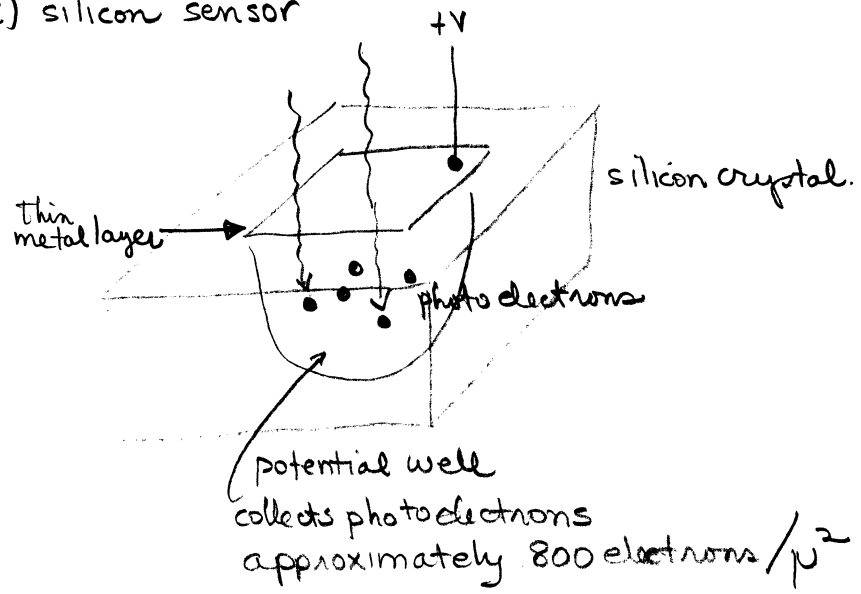 ) silicon sensor
+V
silicon crystal.
thin
metal layer
photoelectrons
potential well
collects photoelectrons
approximately 800 electrons/μ²